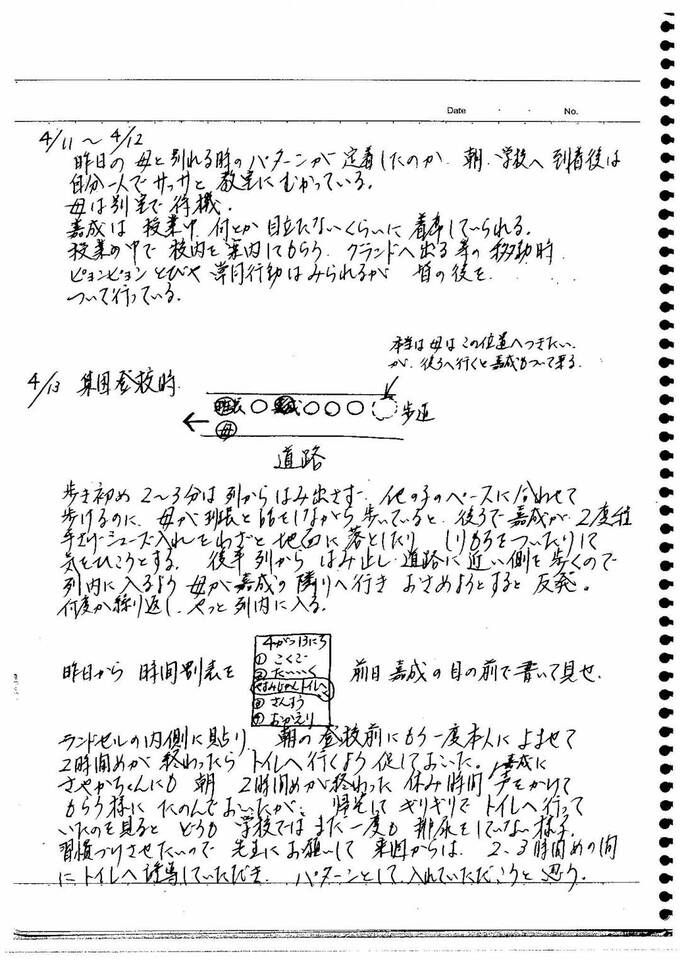 Date ・ ・ No.
4/11 〜 4/12
昨日の母と別れる時のパターンが定着したのか、朝、学校へ到着後は
自分一人でサッサと教室にむかっている。
母は別室で待機。
嘉成は授業中、何とか目立たないくらいに着席していられる。
授業の中で校内を案内してもらう、グランドへ出る等の移動時、
ピョンピョンとびや常同行動はみられるが 皆の後を
ついて行っている。
本当は母はこの位置へつきたい
が、後ろへ行くと嘉成もついて来る。
4/13 集団登校時
班長 嘉成 歩道
母
道路
歩き初め2〜3分は列からはみ出さず、他の子のペースに合わせて
歩けるのに、母が班長と話をしながら歩いていると、後ろで嘉成が2度程
手さげ・シューズ入れをわざと地面に落としたり しりもちをついたりして
気をひこうとする。 後半列からはみ出し、道路に近い側を歩くので
列内に入るよう母が嘉成の隣りへ行き おさめようとすると反発。
何度か繰り返し、やっと列内に入る。
4がつ13にち
① こくご
② たいいく
やすみじかんトイレへ
③ さんすう
④ おかえり
昨日から 時間割表を 前日嘉成の目の前で書いて見せ、
ランドセルの内側に貼り、朝の登校前にもう一度本人によませて
2時間めが終わったらトイレへ行くよう促しておいた。嘉成に
さやかちゃんにも朝、2時間めが終わった休み時間、声をかけて
もらう様にたのんでおいたが、帰宅してギリギリでトイレへ行って
いたのを見ると どうも学校ではまだ一度も排尿をしていない様子。
習慣づけさせたいので 先生にお願いして来週からは、2、3時間めの間
にトイレへ誘導していただき、パターンとして入れていただこうと思う。